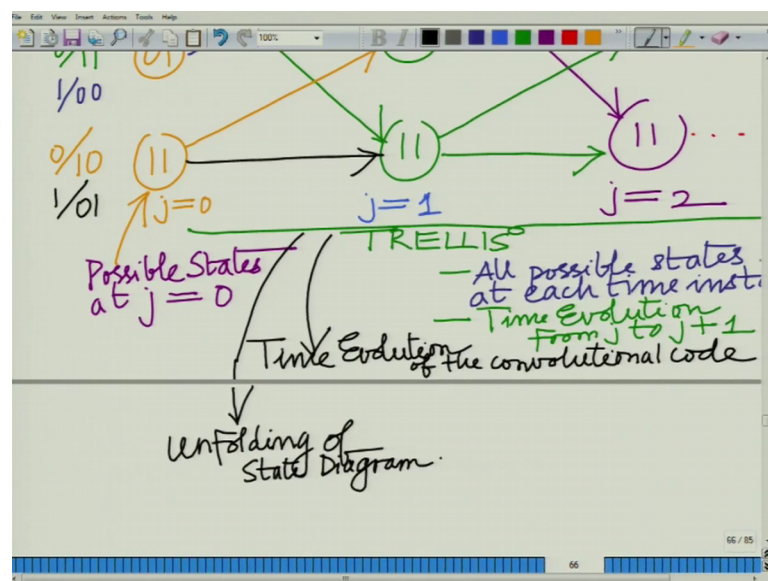 File Edit View Insert Actions Tools Help
100%
B I
0/11
01
1/00
0/10
11
11
11
1/01
j=0
j=1
j=2
TRELLIS
Possible States
at j=0
— All possible states
at each time inst
— Time Evolution
From j to j+1
Time Evolution
of the convolutional code
Unfolding of
State Diagram.
66 / 85
66